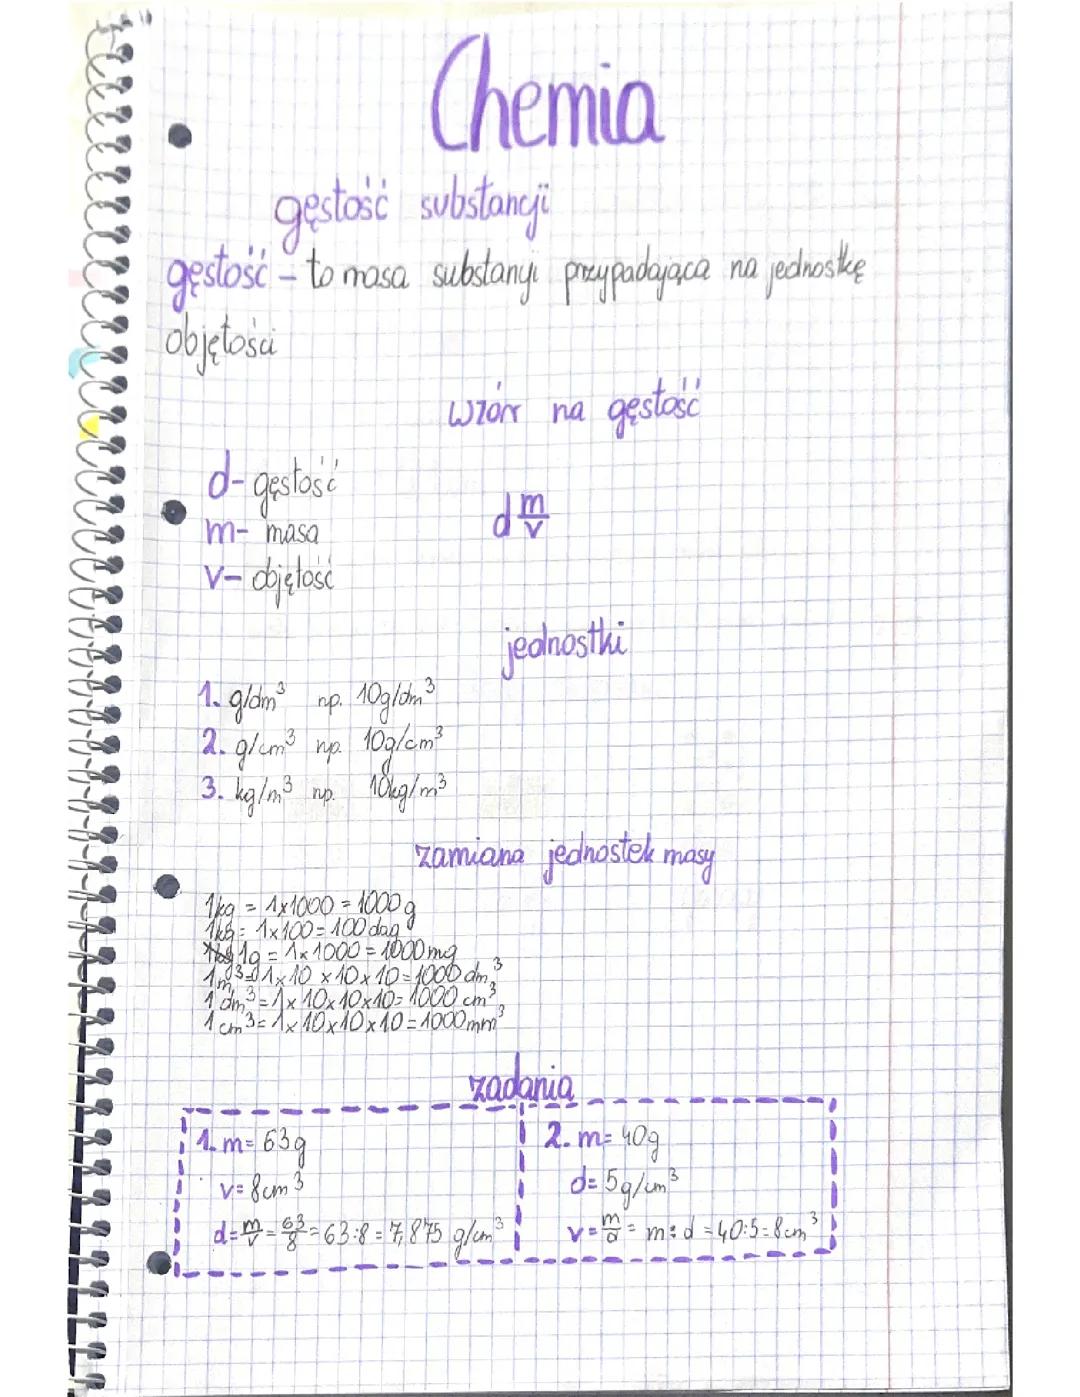 Chemia
gęstość substancji
gęstość - to masa substancji przypadająca na jednostkę
objętości
wzór na gęstość
d- gęstość
m- masa
v- objętość
d m/v
jednostki
1. g/dm³ np. 10g/dm³
2. g/cm³ np. 10g/cm³
3. kg/m³ np. 10kg/m³
zamiana jednostek masy
1kg = 1x1000 = 1000g
1kg = 1x100 = 100dag
1g = 1x1000 = 1000mg
1m³ = 1x10x10x10 = 1000dm³
1dm³ = 1x10x10x10 = 1000cm³
1cm³ = 1x10x10x10 = 1000mm³
zadania
1. m= 63g
v= 8cm³
d= m/v = 63/8 = 63:8 = 7,875 g/cm³
2. m= 40g
d= 5g/cm³
v= m/d = m:d = 40:5 = 8cm³